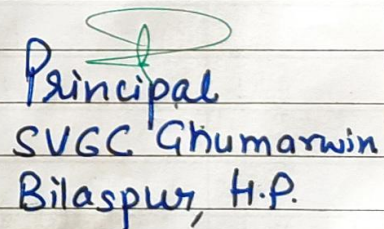 Principal
SVGC Ghumarwin
Bilaspur, H.P.